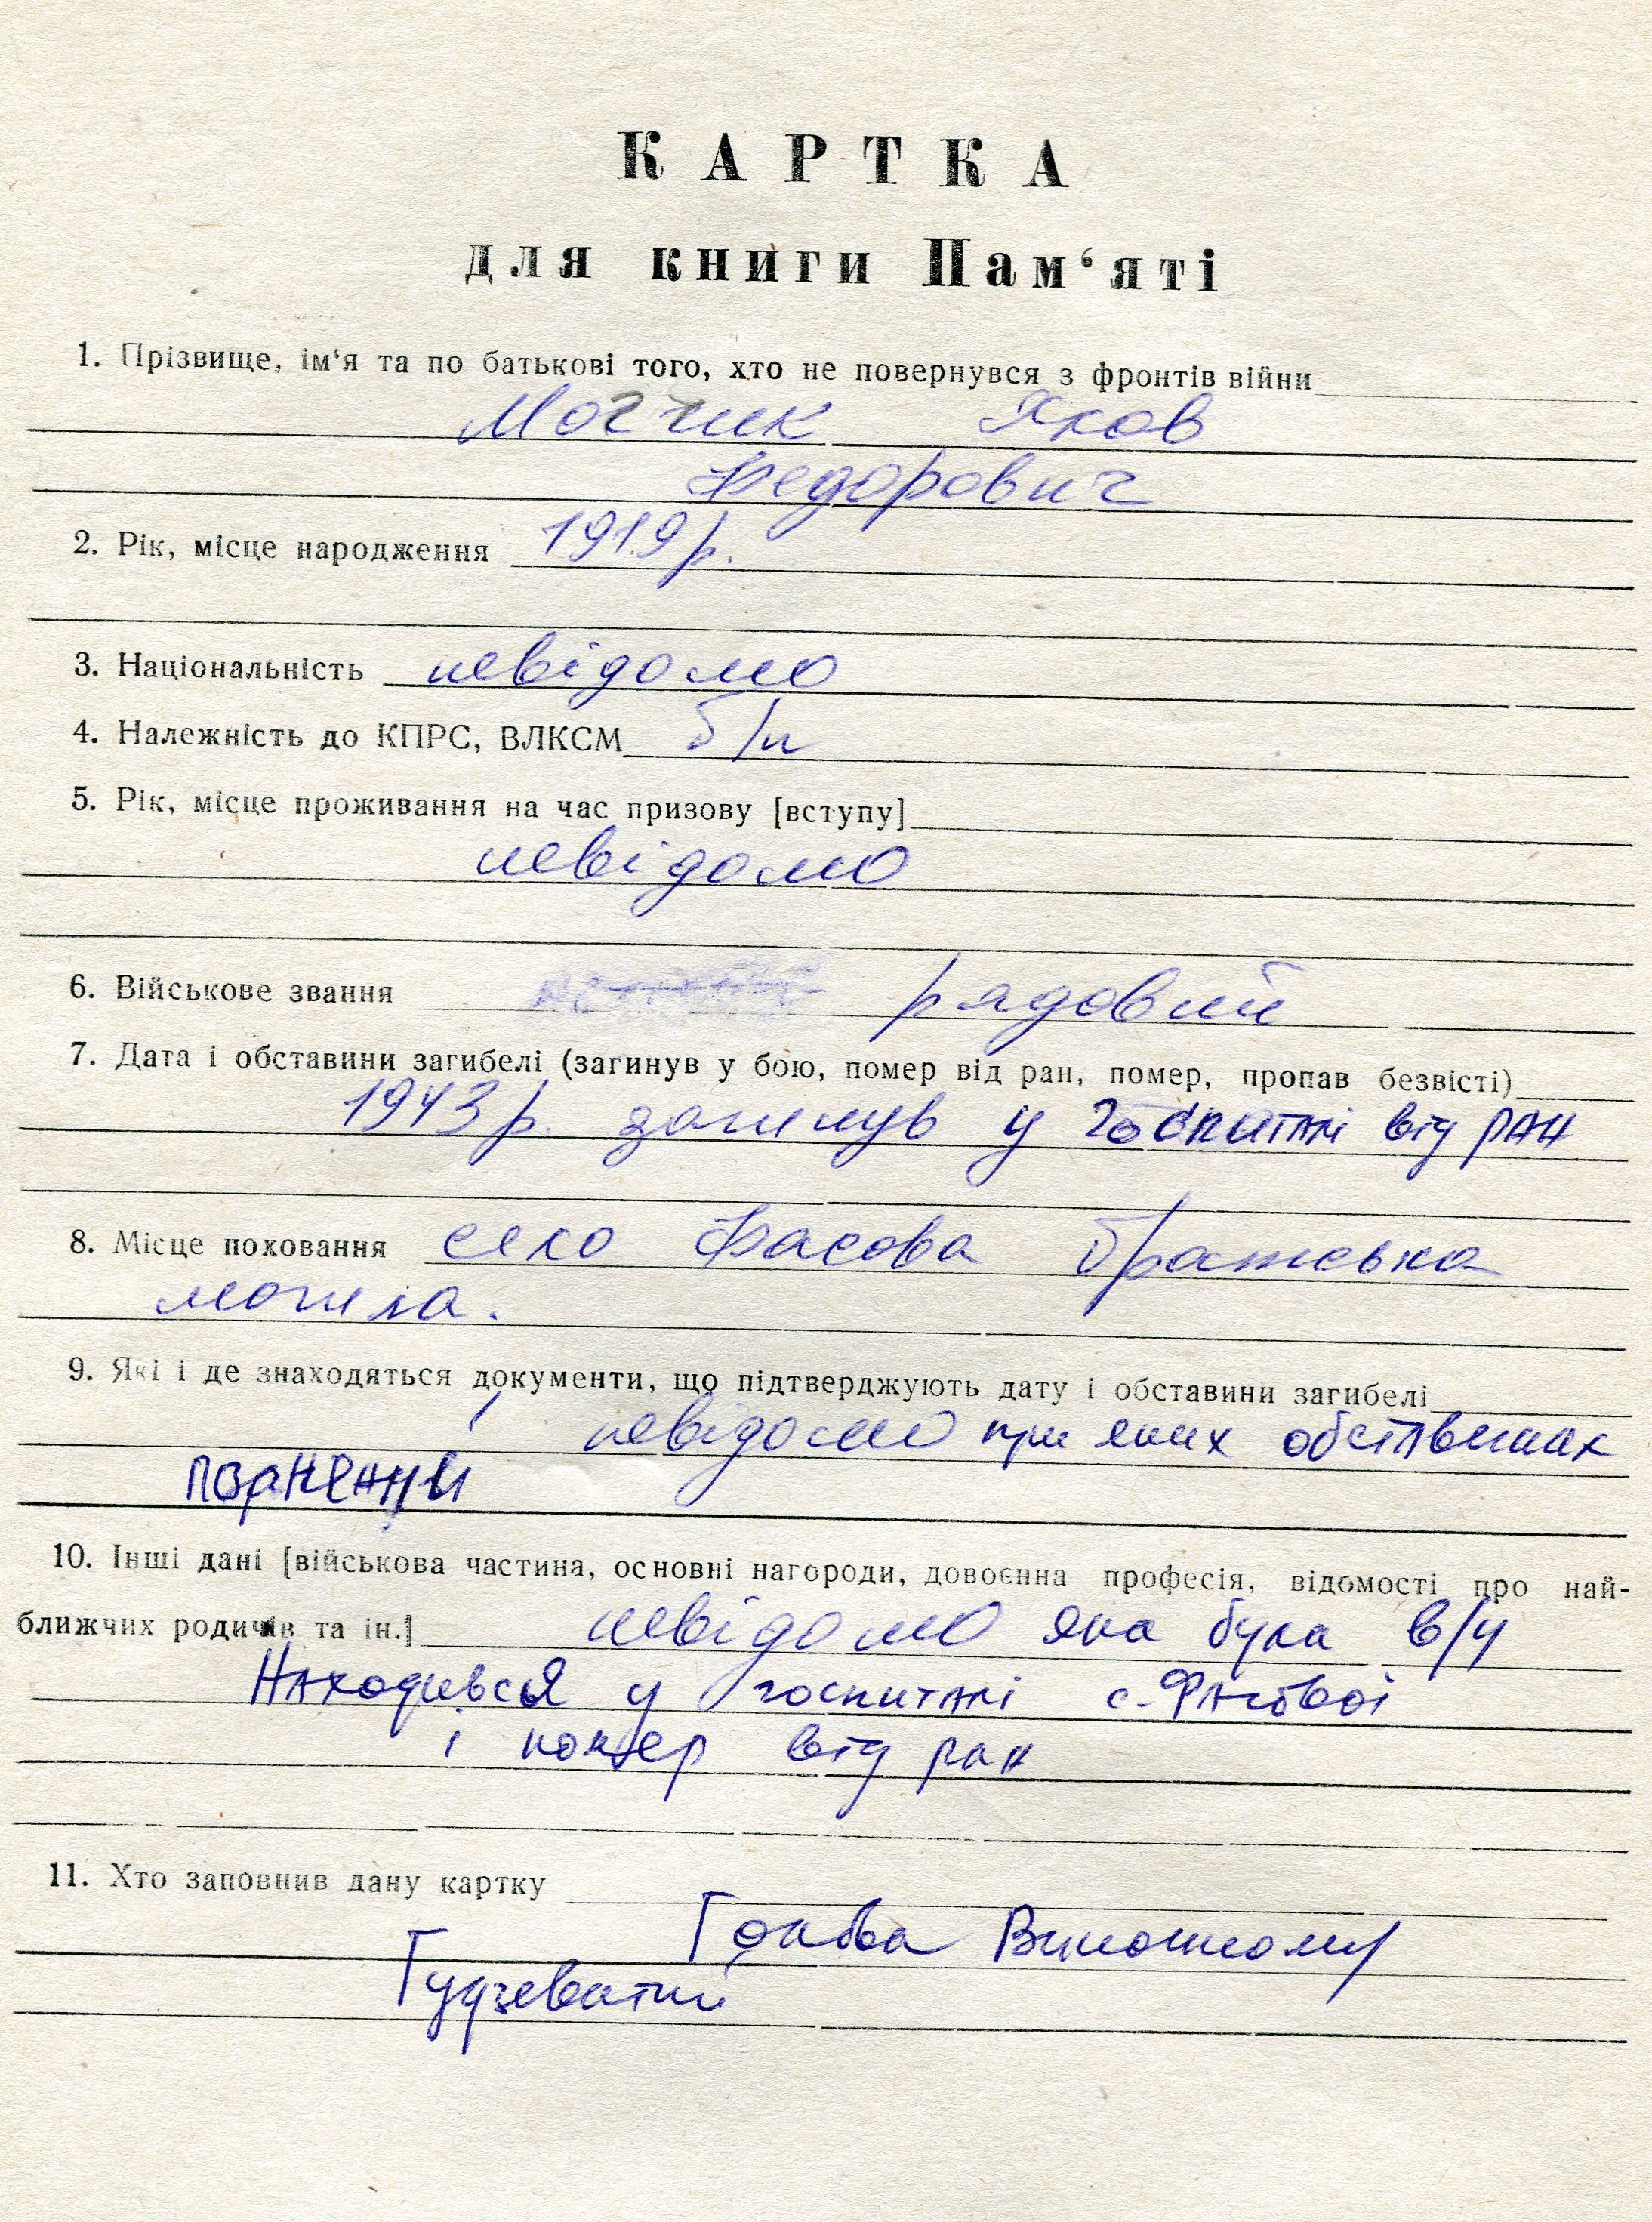 КАРТКА
для книги Пам‘яті
1. Прізвище, ім‘я та по батькові того, хто не повернувся з фронтів війни
Яков
Федорович
2. Рік, місце народження 1919 р.
3. Національність невідомо
4. Належність до КПРС, ВЛКСМ б/п
5. Рік, місце проживання на час призову [вступу]
невідомо
6. Військове звання рядовий
7. Дата і обставини загибелі (загинув у бою, помер від ран, помер, пропав безвісті)
1943 р. загинув у госпиталі від ран
8. Місце поховання село Фасова братська
могила.
9. Які і де знаходяться документи, що підтверджують дату і обставини загибелі
невідомо при яких обставинах
10. Інші дані [військова частина, основні нагороди, довоєнна професія, відомості про най-
ближчих родичів та ін.] невідомо яка була в/ч
Находився у госпиталі с. Фасової
і помер від ран
11. Хто заповнив дану картку
Голова Виконкому